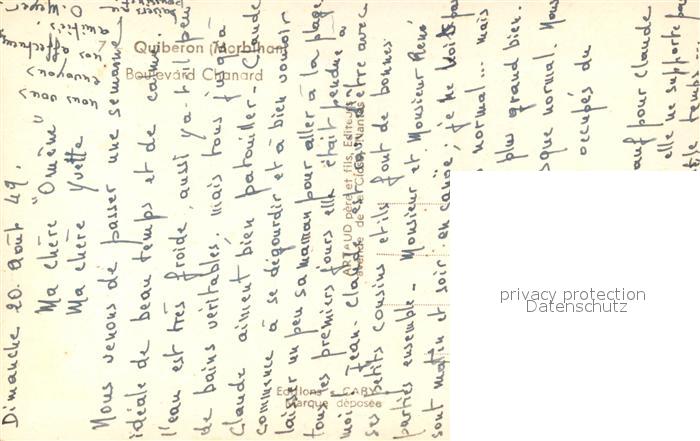 7
Quiberon (Morbihan)
Boulevard Chanard
Dimanche 20. août 49.
Ma chère "Omème"
Ma chère Yvette
Nous venons de passer une semaine
idéale de beau temps et de calme.
l'eau est très froide, aussi y a-t-il peu
de bains véritables. Mais tous jusqu'à
Claude aiment bien patouiller - Claude
commence à se dégourdir et à bien vouloir
laisser un peu sa maman pour aller à la plage
tous les premiers jours elle était pendue à
moi. Jean-Claude est ravi d'être avec
ses petits cousins et ils font de bonnes
parties ensemble - Monsieur et Monsieur René
sont matin et soir en canoë, je ne vois pas
normal... mais
plus grand bien.
sque normal. Nous
occupés du
auf pour Claude
elle ne supporte pas
temps...
nous vous
envoyons
nos affectueuses
amitiés
O. Meyer
baisers
ARTAUD père et fils, Editeurs
avenue de la Close, Nantes
Editions "GABY"
Marque déposée
privacy protection
Datenschutz